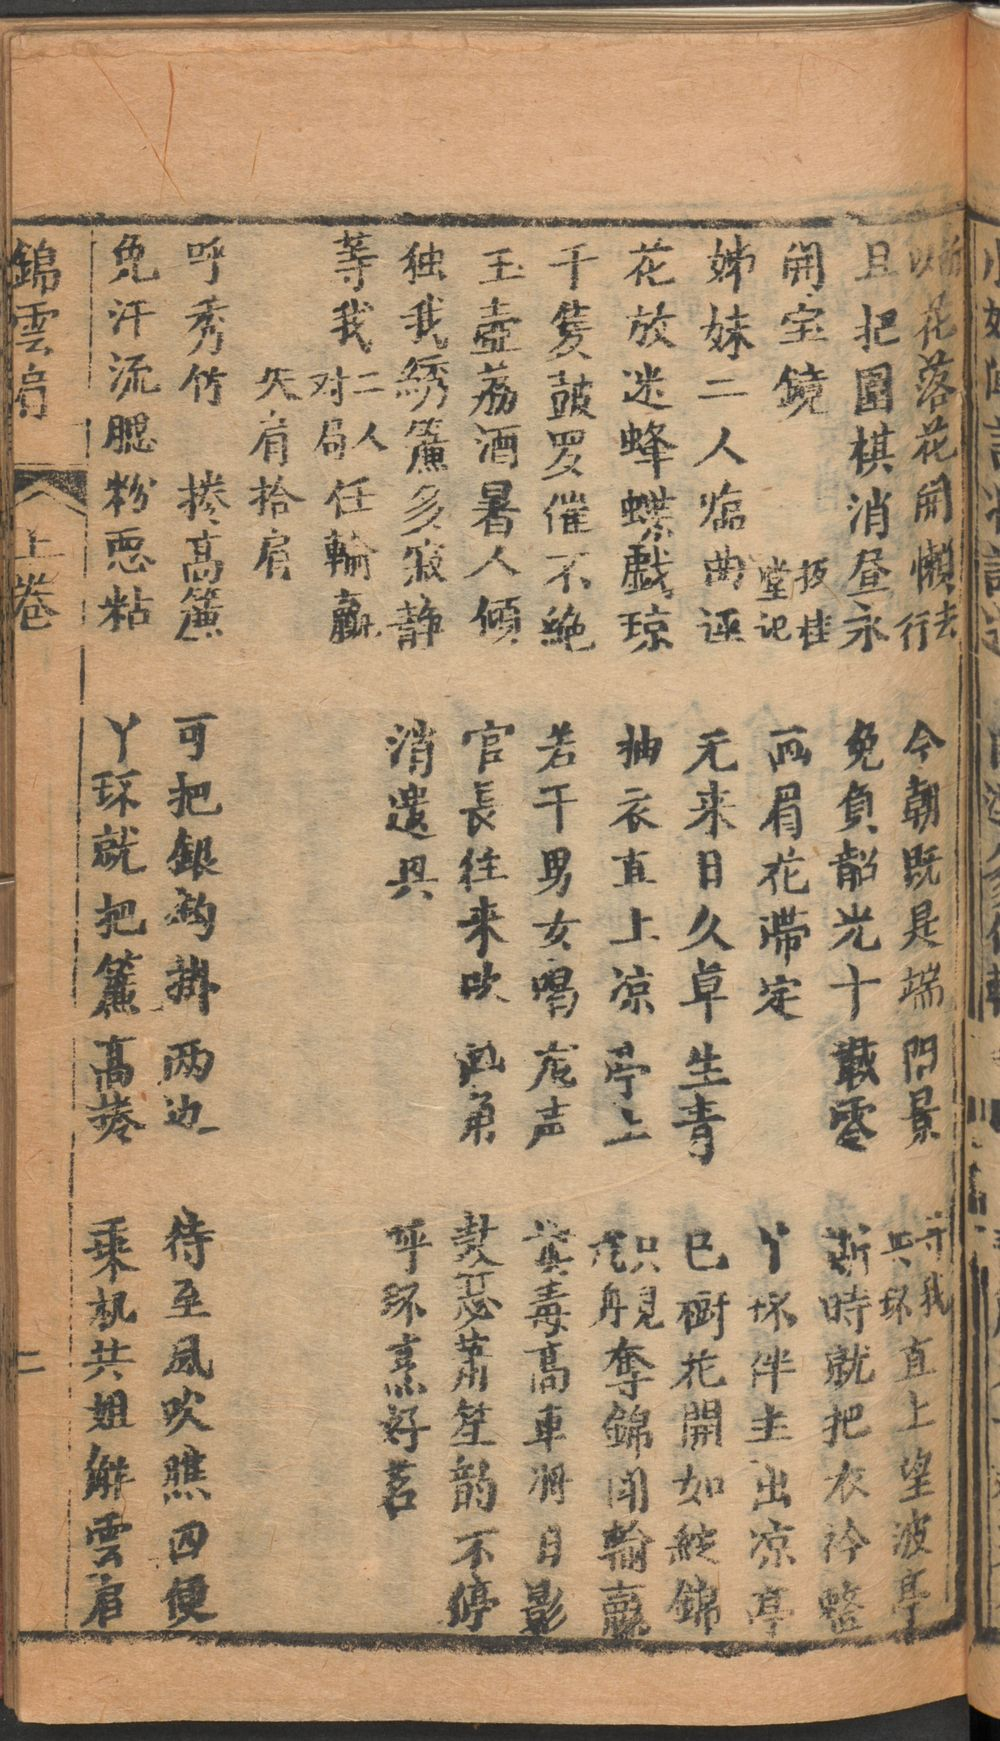 花落花開懶行去 今朝既是端陽景 直上望波亭
且把圍棋消昼永 免負韶光十載零 斯時就把衣衿整
開宝鏡 画眉花滯定 丫环伴主出凉亭
姊妹二人臨曲 扳桂堂記 无来日久卓生青 已樹花開如綻錦
花放迷蜂蝶戲琼 抽衣直上凉亭上 只見 奪錦闹輸贏
千隻鼓罗催不絶 若干男女唱声 高車 日影
玉壺荔酒暑人傾 官長往来吹画角 鼓瑟萧笙韵不停
独我綉簾多寂静 消遣具 呼环烹好茗
等我二人对局任輸贏
失肩拾肩
呼秀竹 捲高簾 可把銀鈎掛两边 待至風吹 四便
免汗流腮粉惡粘 丫环就把簾高捲 乘机共姐解雲肩
錦雲肩 上卷 二